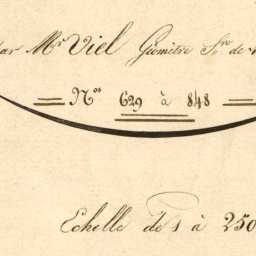 par Mr Viel Géomètre Sre de
Nos 629 à 848
Echelle de 1 à 250